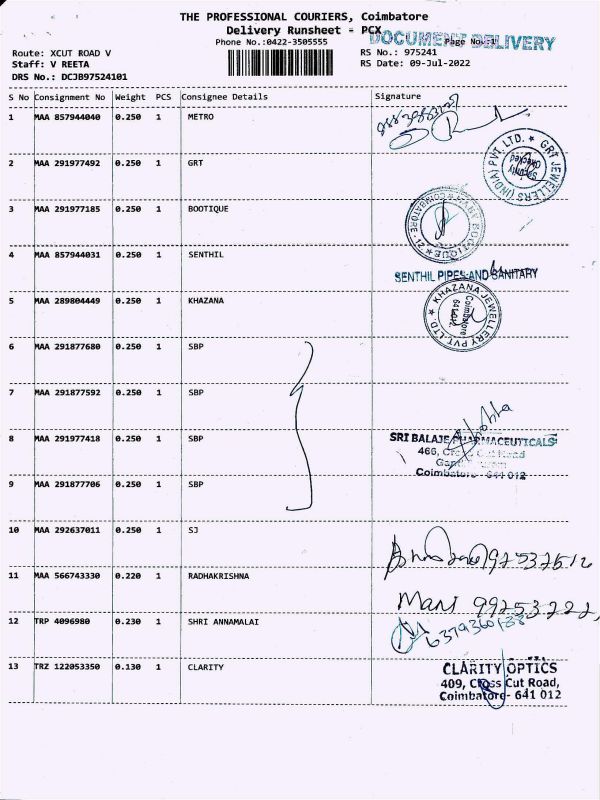 THE PROFESSIONAL COURIERS, Coimbatore
Delivery Runsheet - PCX
Phone No.:0422-3505555
Page No.:1
DOCUMENT DELIVERY
Route: XCUT ROAD V
Staff: V REETA
DRS No.: DCJB97524101
RS No.: 975241
RS Date: 09-Jul-2022
S No Consignment No Weight PCS Consignee Details Signature
1 MAA 857944040 0.250 1 METRO
2 MAA 291977492 0.250 1 GRT
GRT JEWELLERS (INDIA) PVT. LTD. ★
Security
Checked
3 MAA 291977185 0.250 1 BOOTIQUE
BOUTIQUE ★ COIMBATORE - 12
4 MAA 857944031 0.250 1 SENTHIL
SENTHIL PIPES AND SANITARY
5 MAA 289804449 0.250 1 KHAZANA
★ KHAZANA JEWELLERY PVT. LTD
Coimbatore
6 MAA 291877680 0.250 1 SBP
7 MAA 291877592 0.250 1 SBP
8 MAA 291977418 0.250 1 SBP
SRI BALAJE PHARMACEUTICALS
466, Cross Cut Road
Coimbatore - 641 012
9 MAA 291877706 0.250 1 SBP
10 MAA 292637011 0.250 1 SJ
11 MAA 566743330 0.220 1 RADHAKRISHNA
Mari
12 TRP 4096980 0.230 1 SHRI ANNAMALAI
13 TRZ 122053350 0.130 1 CLARITY
CLARITY OPTICS
409, Cross Cut Road,
Coimbatore- 641 012